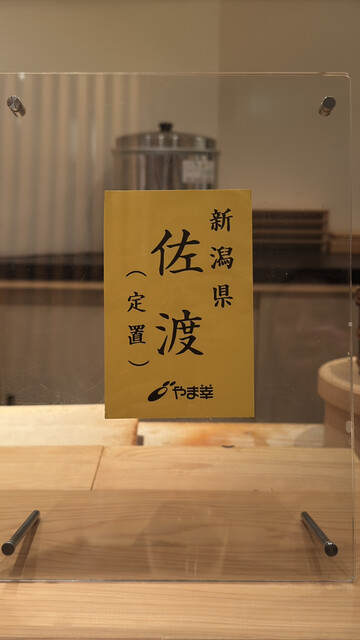 新潟県
佐渡
（定置）
やま幸